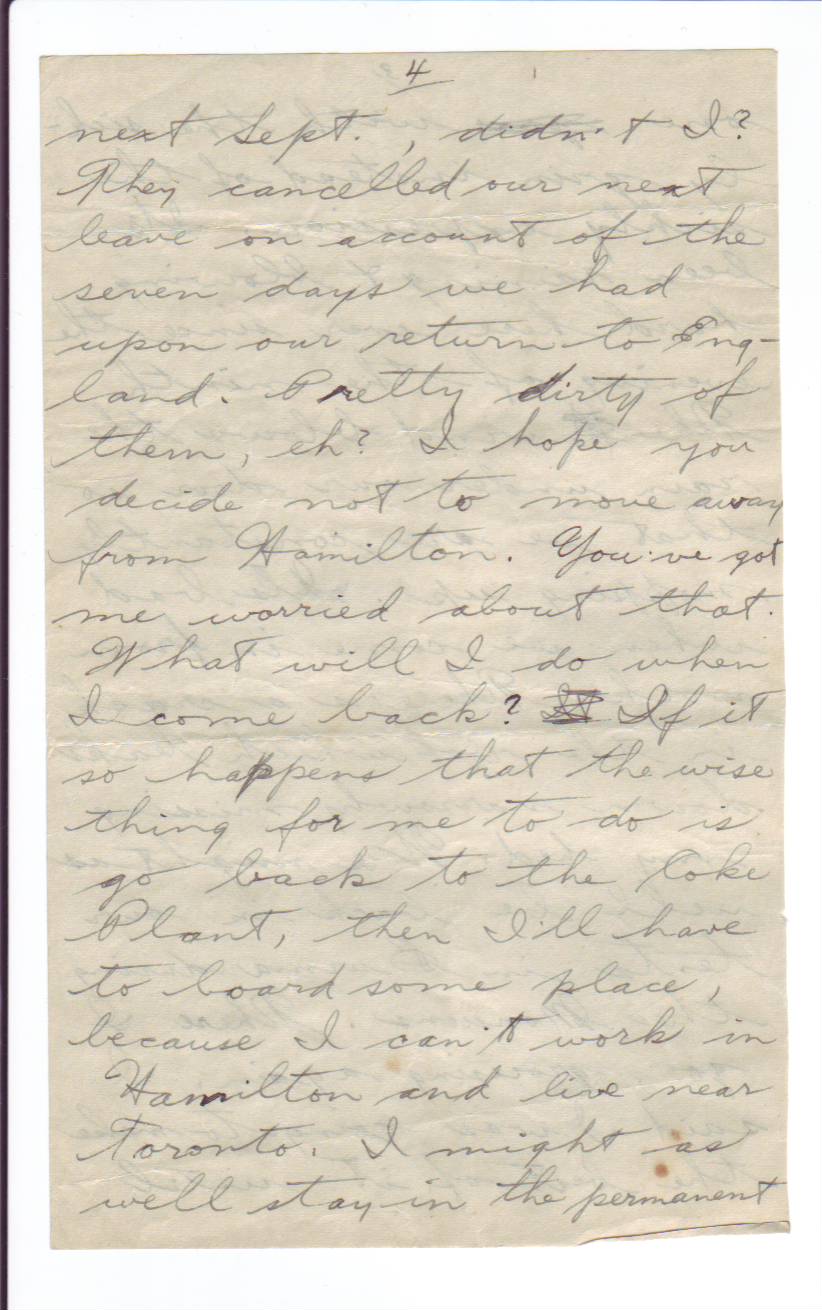 4
next Sept. , didn't I?
They cancelled our next
leave on account of the
seven days we had
upon our return to Eng-
land. Pretty dirty of
them, eh? I hope you
decide not to move away
from Hamilton. You've got
me worried about that.
What will I do when
I come back? If it
so happens that the wise
thing for me to do is
go back to the Coke
Plant, then I'll have
to board some place,
because I can't work in
Hamilton and live near
Toronto. I might as
well stay in the permanent